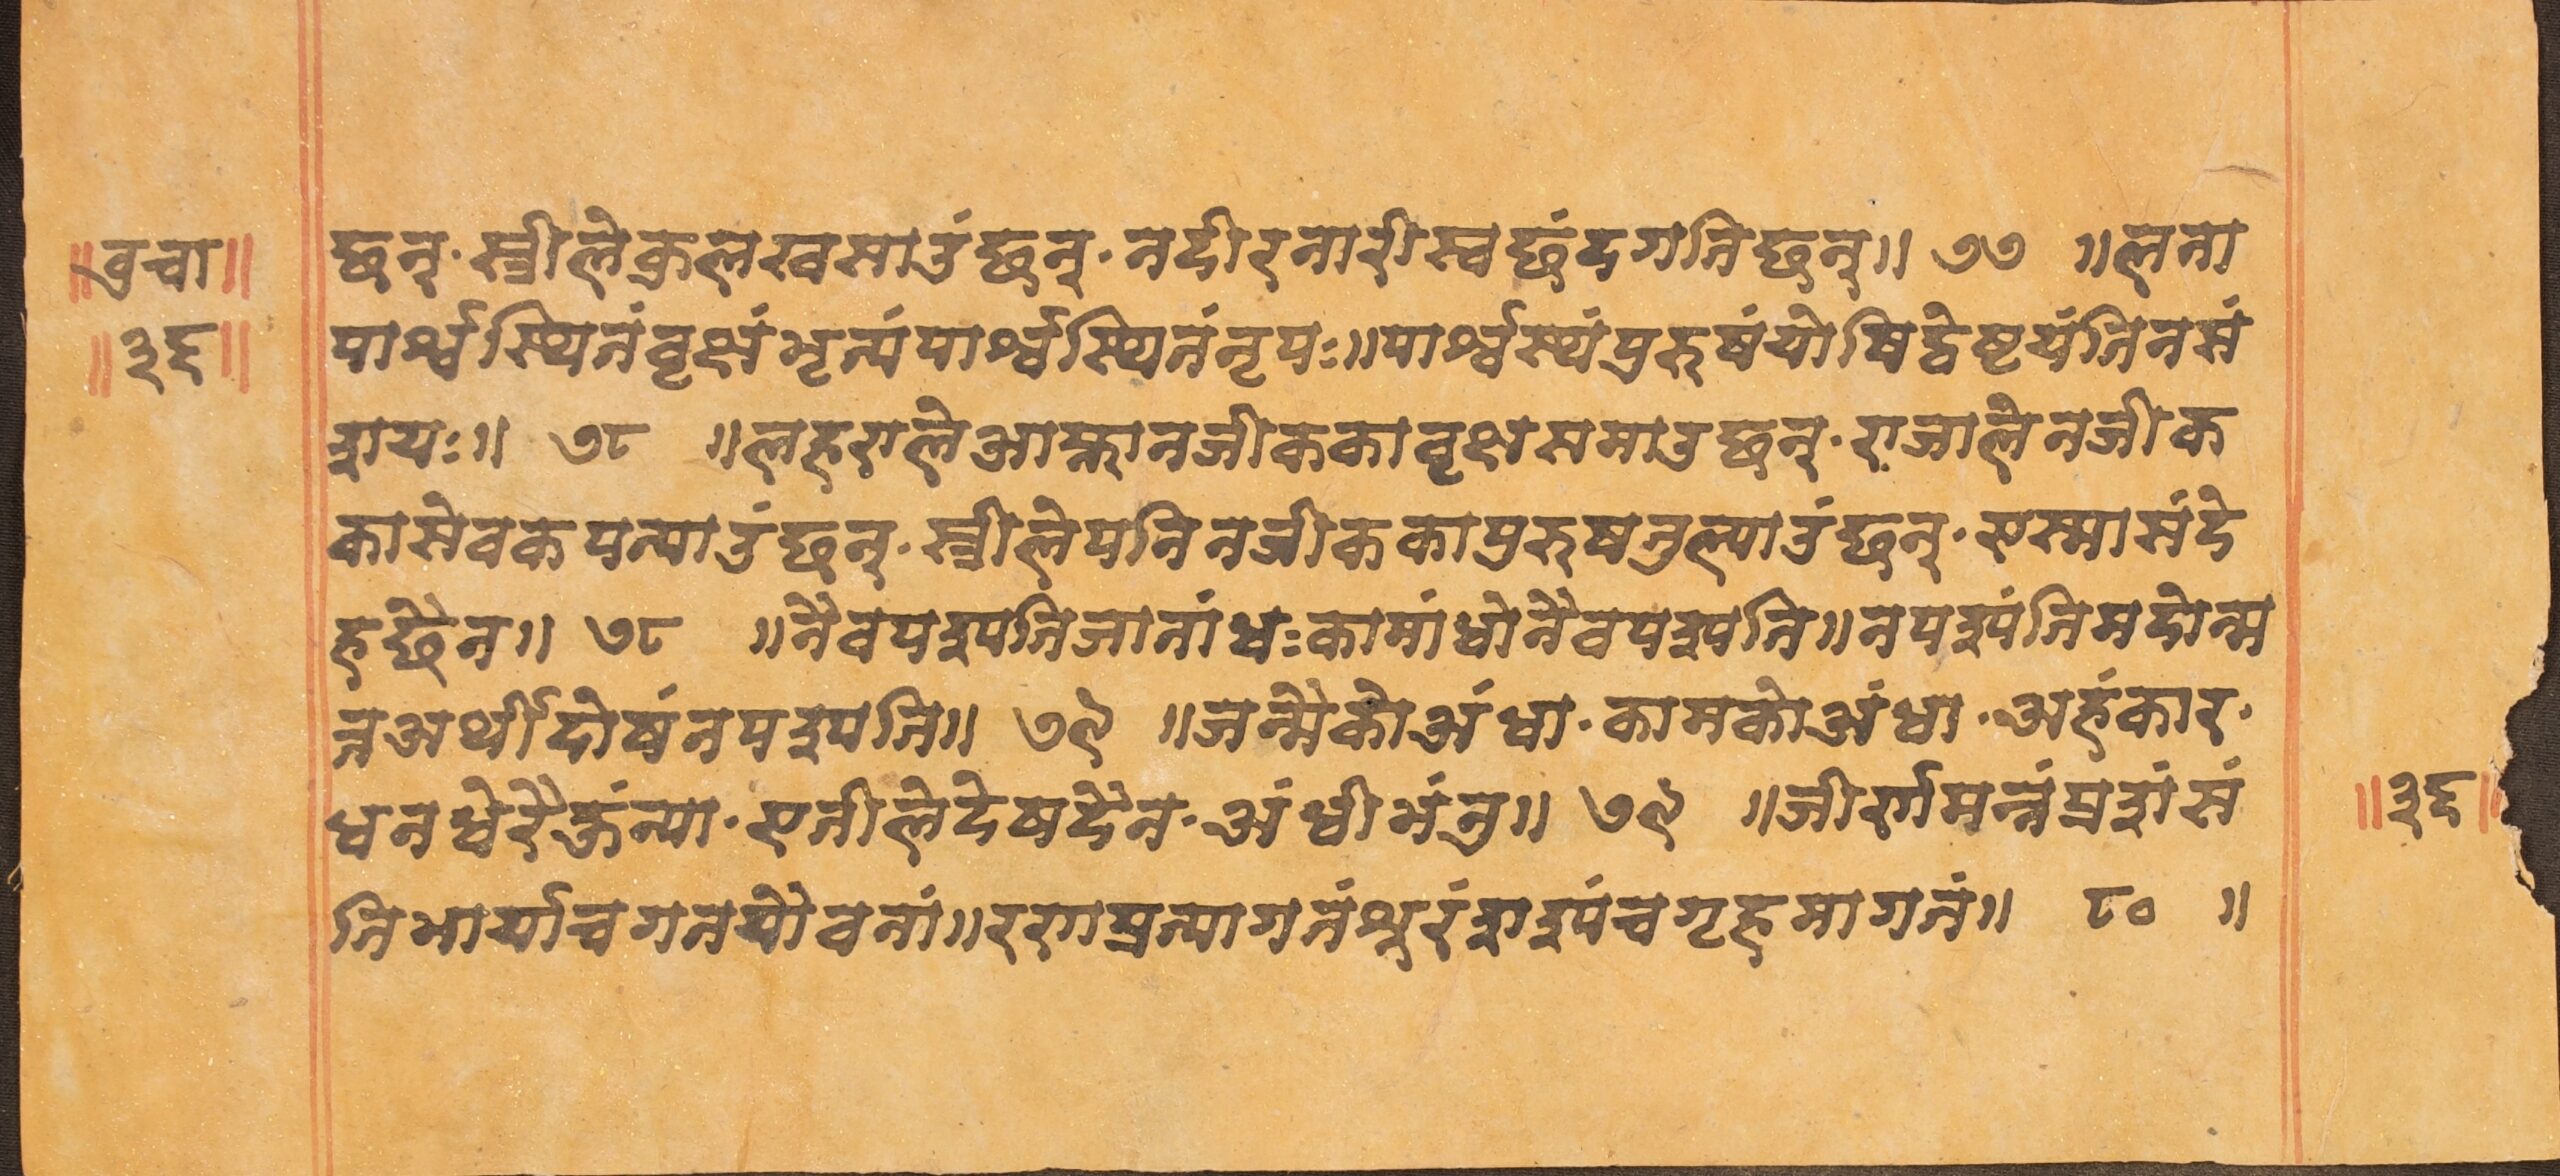 ॥वृचा॥
॥३६॥
छन्·स्त्रीलेकुलखसाउंछन्·नदीरनारीस्वछंदगतिछन्॥ ७७ ॥लता
पार्श्वस्थितंवृक्षंभृत्यंपार्श्वस्थितंनृपः॥पार्श्वस्थंपुरुषंयोषिद्वेष्टयंतिनसं
शयः॥ ७८ ॥लहराले आफ्नानजीककावृक्षसमाउछन्·राजालेनजीक
कासेवकपत्याउंछन्·स्त्रीलेपनिनजीककापुरुषतुल्याउंछन्·एस्मासंदे
हछैन॥ ७८ ॥नैवपश्यतिजातांधःकामांधोनैवपश्यति॥नपश्यंतिमदोन्म
त्तअर्थीदोषंनपश्यति॥ ७९ ॥जन्मैकोअंधा·कामकोअंधा·अहंकार·
धनधेरैहुंन्या·एतीलेदेषदैन·अंधीभंनु॥ ७९ ॥जीर्णमन्नंप्रशंसं
तिभार्याचगतयौवनां॥रणप्रत्यागतंशूरंशश्यंचगृहमागतं॥ ८० ॥
॥३६॥